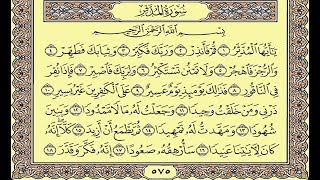 سُورَةُ المُدَّثِّر
بِسْمِ ٱللَّهِ ٱلرَّحْمَٰنِ ٱلرَّحِيمِ
يَٰٓأَيُّهَا ٱلْمُدَّثِّرُ ١ قُمْ فَأَنذِرْ ٢ وَرَبَّكَ فَكَبِّرْ ٣ وَثِيَابَكَ فَطَهِّرْ ٤
وَٱلرُّجْزَ فَٱهْجُرْ ٥ وَلَا تَمْنُن تَسْتَكْثِرُ ٦ وَلِرَبِّكَ فَٱصْبِرْ ٧ فَإِذَا نُقِرَ
فِى ٱلنَّاقُورِ ٨ فَذَٰلِكَ يَوْمَئِذٍ يَوْمٌ عَسِيرٌ ٩ عَلَى ٱلْكَٰفِرِينَ غَيْرُ يَسِيرٍ ١٠
ذَرْنِى وَمَنْ خَلَقْتُ وَحِيدًا ١١ وَجَعَلْتُ لَهُۥ مَالًا مَّمْدُودًا ١٢ وَبَنِينَ
شُهُودًا ١٣ وَمَهَّدتُّ لَهُۥ تَمْهِيدًا ١٤ ثُمَّ يَطْمَعُ أَنْ أَزِيدَ ١٥ كَلَّآ إِنَّهُۥ
كَانَ لِءَايَٰتِنَا عَنِيدًا ١٦ سَأُرْهِقُهُۥ صَعُودًا ١٧ إِنَّهُۥ فَكَّرَ وَقَدَّرَ ١٨
٥٧٥